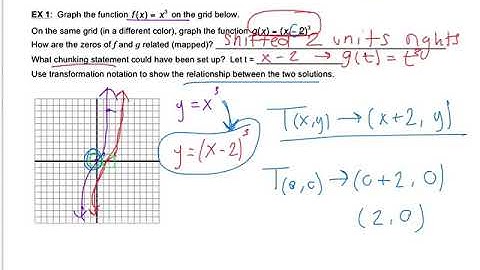 EX 1: Graph the function f(x) = x³ on the grid below.
On the same grid (in a different color), graph the function g(x) = (x - 2)³
How are the zeros of f and g related (mapped)? shifted 2 units rights
What chunking statement could have been set up? Let t = x - 2 → g(t) = t³
Use transformation notation to show the relationship between the two solutions.
y = x³
y = (x - 2)³
T(x,y) → (x+2, y)
T(0,0) → (0+2, 0)
(2,0)